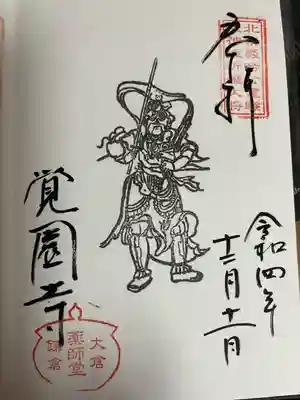 奉拝
令和四年
十二月十一日
覚園寺
大倉
薬師堂
鎌倉